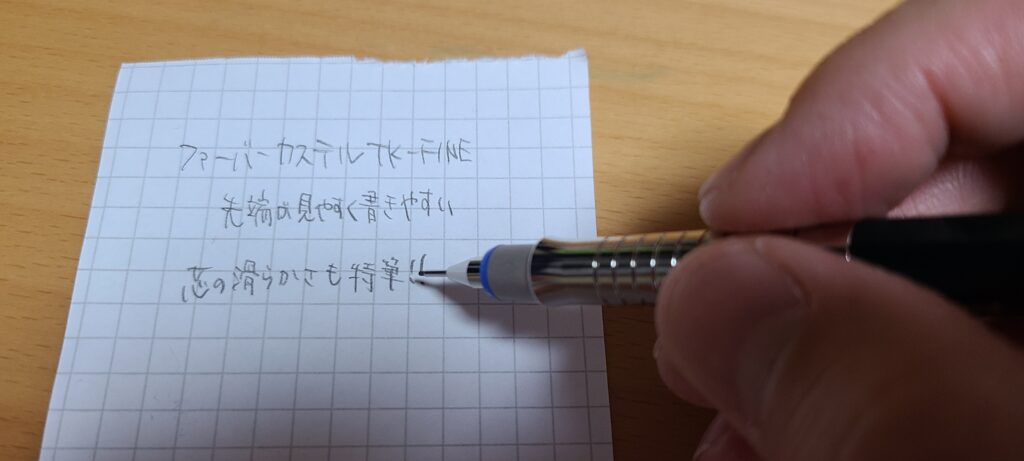 ファーバーカステル TK-FINE
先端が見やすく書きやすい
芯の滑らかさも特筆!!